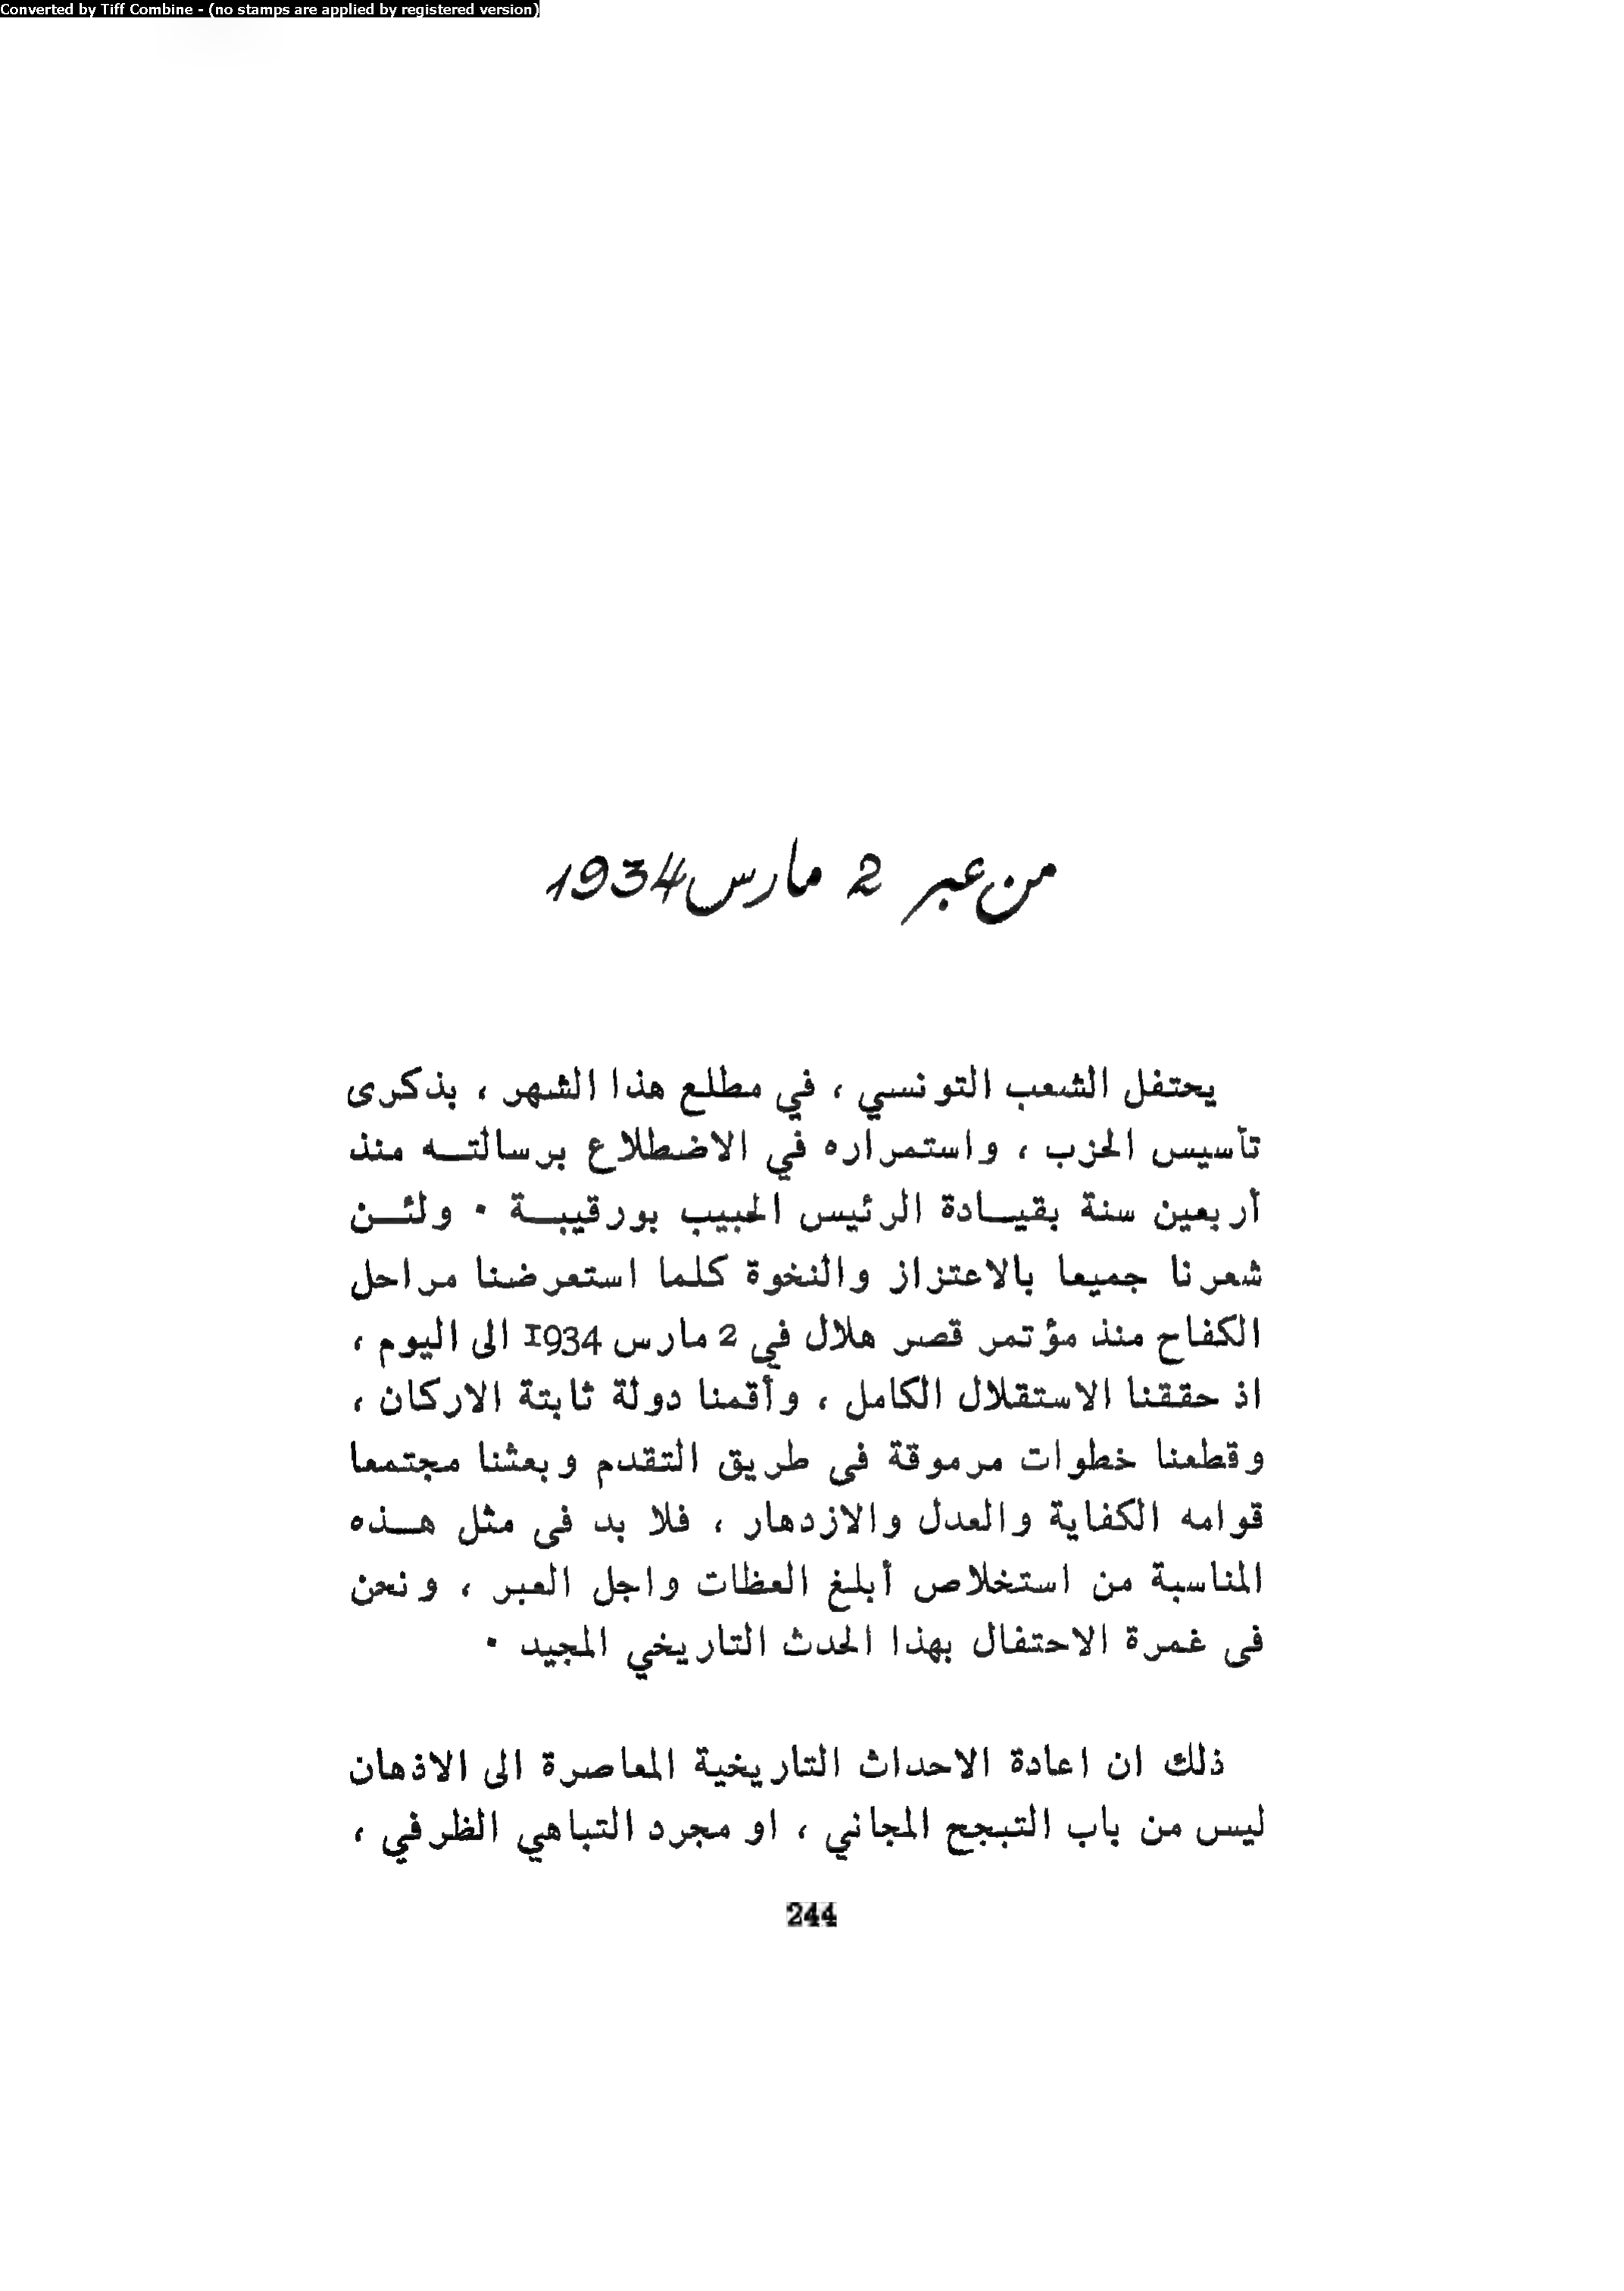 Converted by Tiff Combine - (no stamps are applied by registered version)
من عبر 2 مارس 1934
يحتفل الشعب التونسي ، في مطلع هذا الشهر ، بذكرى
تأسيس الحزب ، واستمراره في الاضطلاع برسالتـــه منذ
أربعين سنة بقيـــادة الرئيس الحبيب بورقيبـــة · ولئـــن
شعرنا جميعا بالاعتزاز والنخوة كلما استعرضنا مراحل
الكفاح منذ مؤتمر قصر هلال في 2 مارس 1934 الى اليوم ،
اذ حققنا الاستقلال الكامل ، وأقمنا دولة ثابتة الاركان ،
وقطعنا خطوات مرموقة فى طريق التقدم وبعثنا مجتمعا
قوامه الكفاية والعدل والازدهار ، فلا بد فى مثل هـــذه
المناسبة من استخلاص أبلغ العظات واجل العبر ، ونحن
فى غمرة الاحتفال بهذا الحدث التاريخي المجيد ·
ذلك ان اعادة الاحداث التاريخية المعاصرة الى الاذهان
ليس من باب التبجح المجاني ، او مجرد التباهي الظرفي ،
244